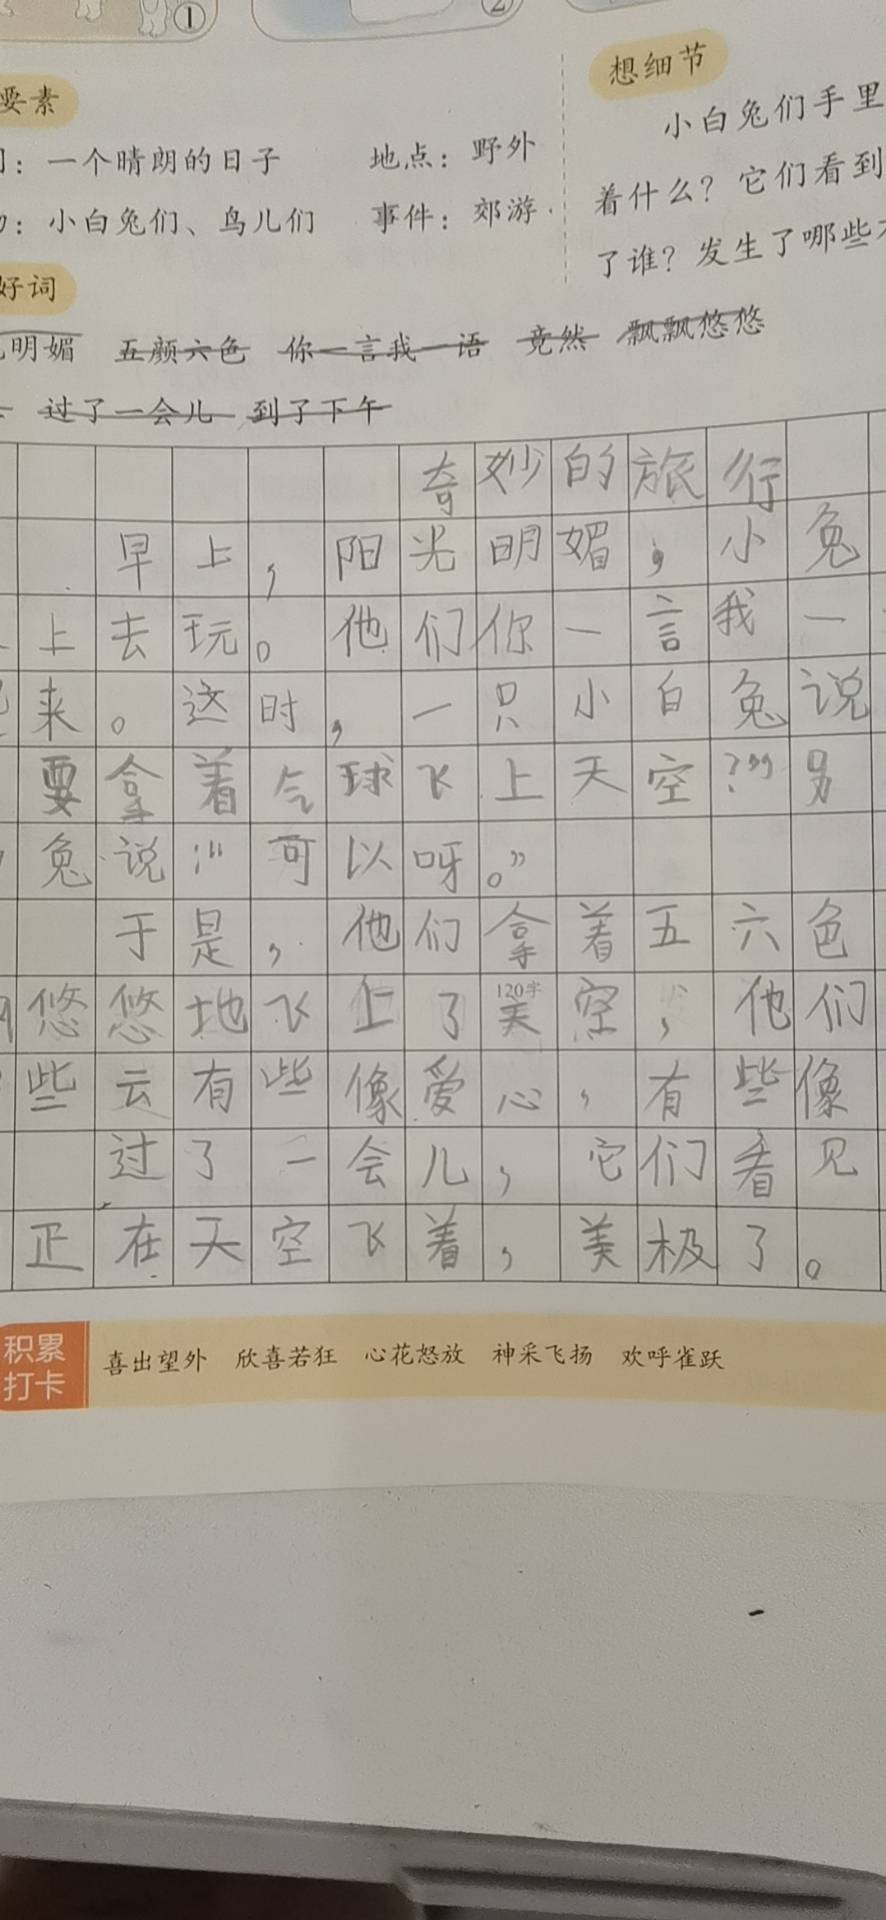 ① ②
要素
：一个晴朗的日子 地点：野外
：小白兔们、鸟儿们 事件：郊游.
想细节
小白兔们手里
着什么？它们看到
了谁？发生了哪些
好词
明媚 五颜六色 你一言我一语 竟然 飘飘悠悠
过了一会儿 到了下午
奇妙的旅行
早上，阳光明媚，小兔
上去玩。他们你一言我一
来。这时，一只小白兔说
要拿着气球飞上天空？”另
兔说：“可以呀。”
于是，他们拿着五六色
悠悠地飞上了天空，他们
120字
些云有些像爱心，有些像
过了一会儿，它们看见
正在天空飞着，美极了。
积累
打卡
喜出望外 欣喜若狂 心花怒放 神采飞扬 欢呼雀跃